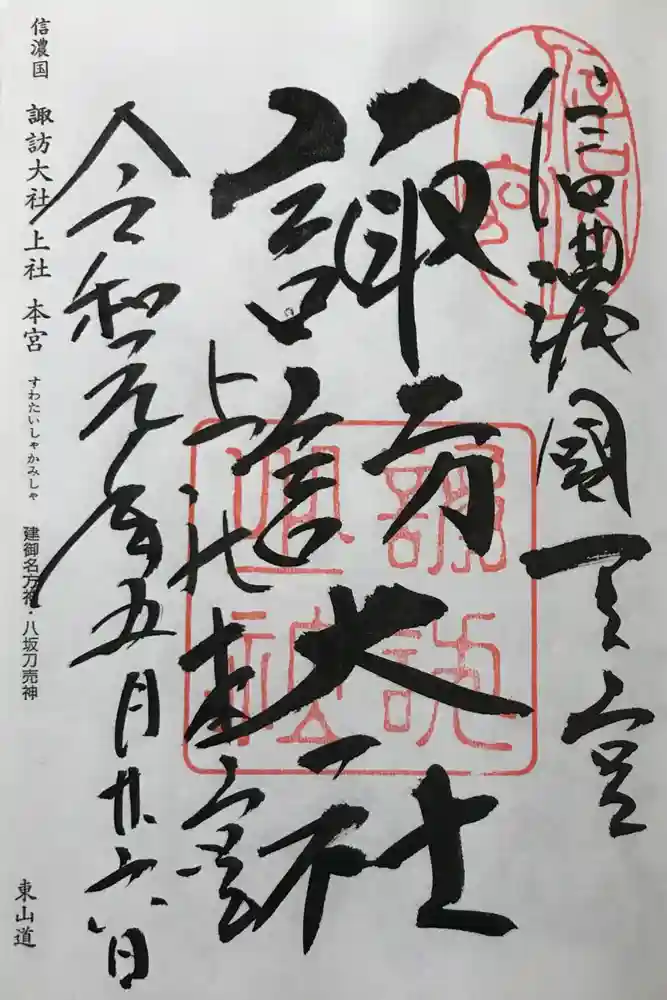 信濃國一之宮
諏訪大社
上社本宮
令和元年五月廿六日
信濃国 諏訪大社 上社 本宮 すわたいしゃかみしゃ 建御名方神・八坂刀売神 東山道